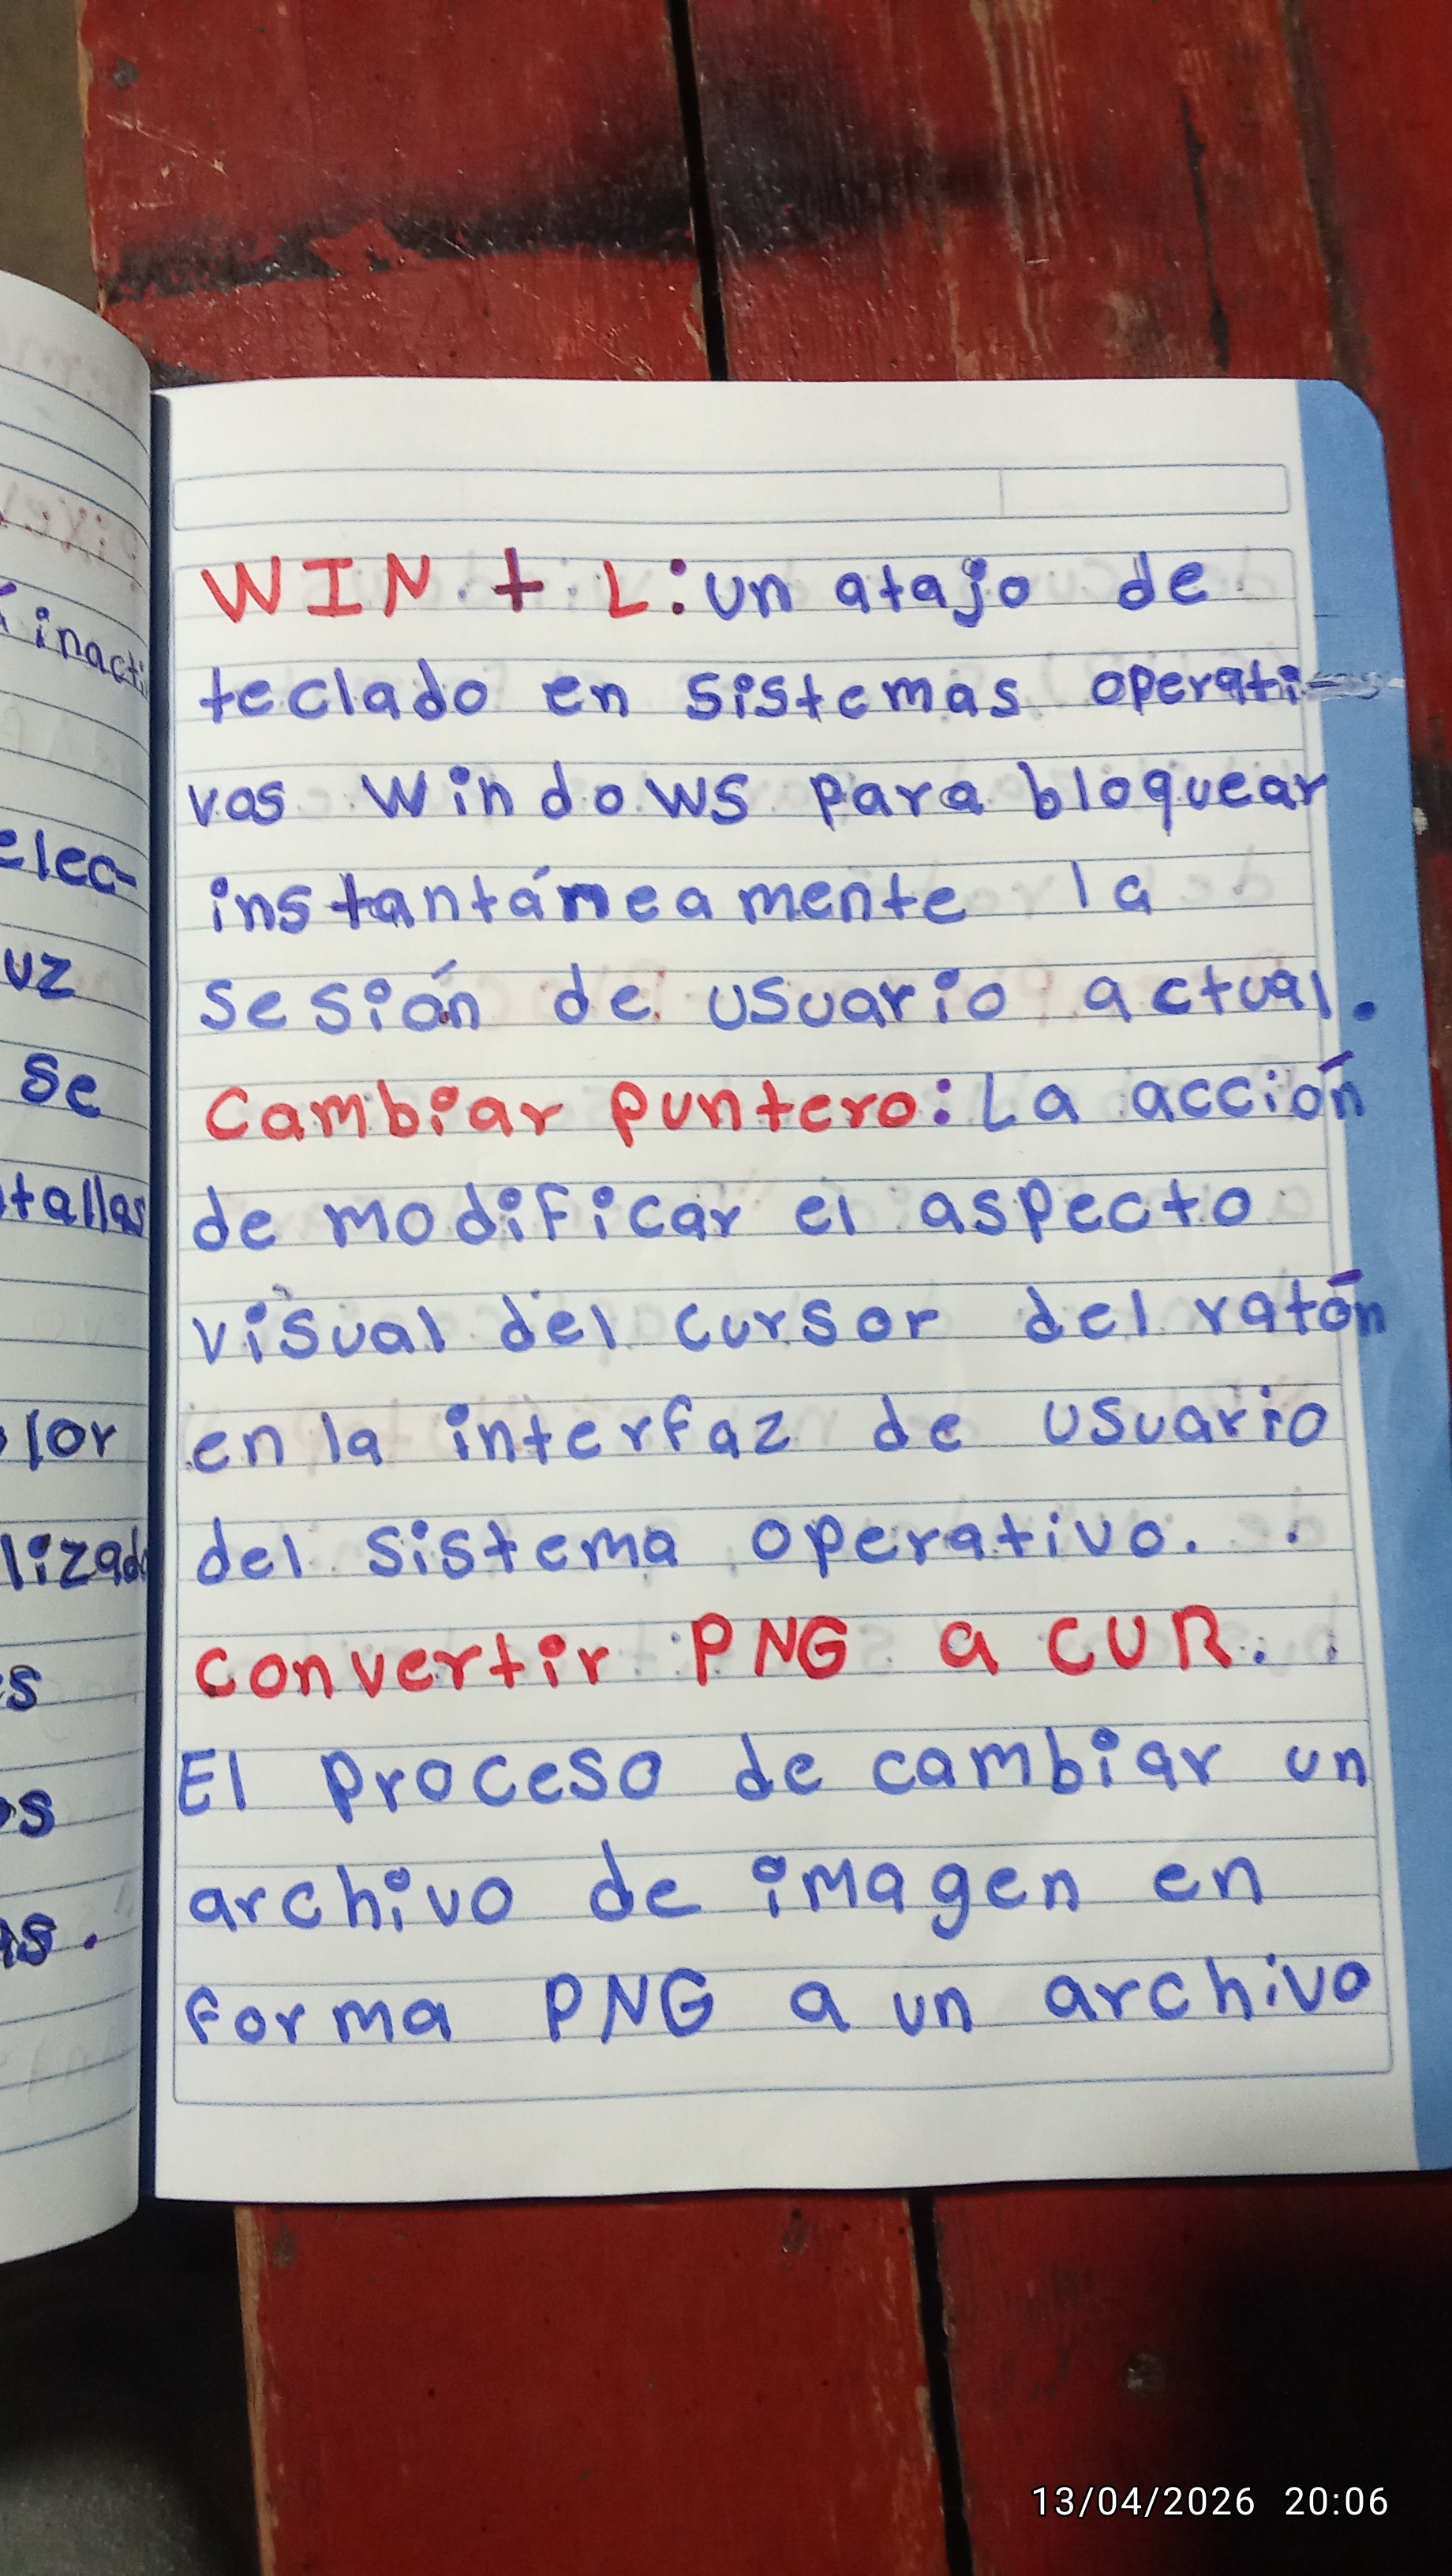 inacti
elec-
uz
se
tallas
lor
lizad
s
os
as.
WIN + L: un atajo de
teclado en sistemas operati-
vos Windows para bloquear
instantáneamente la
sesión de usuario actual.
Cambiar puntero: La acción
de modificar el aspecto
visual del cursor del ratón
en la interfaz de usuario
del sistema operativo.
convertir PNG a CUR.
El proceso de cambiar un
archivo de imagen en
forma PNG a un archivo
13/04/2026 20:06